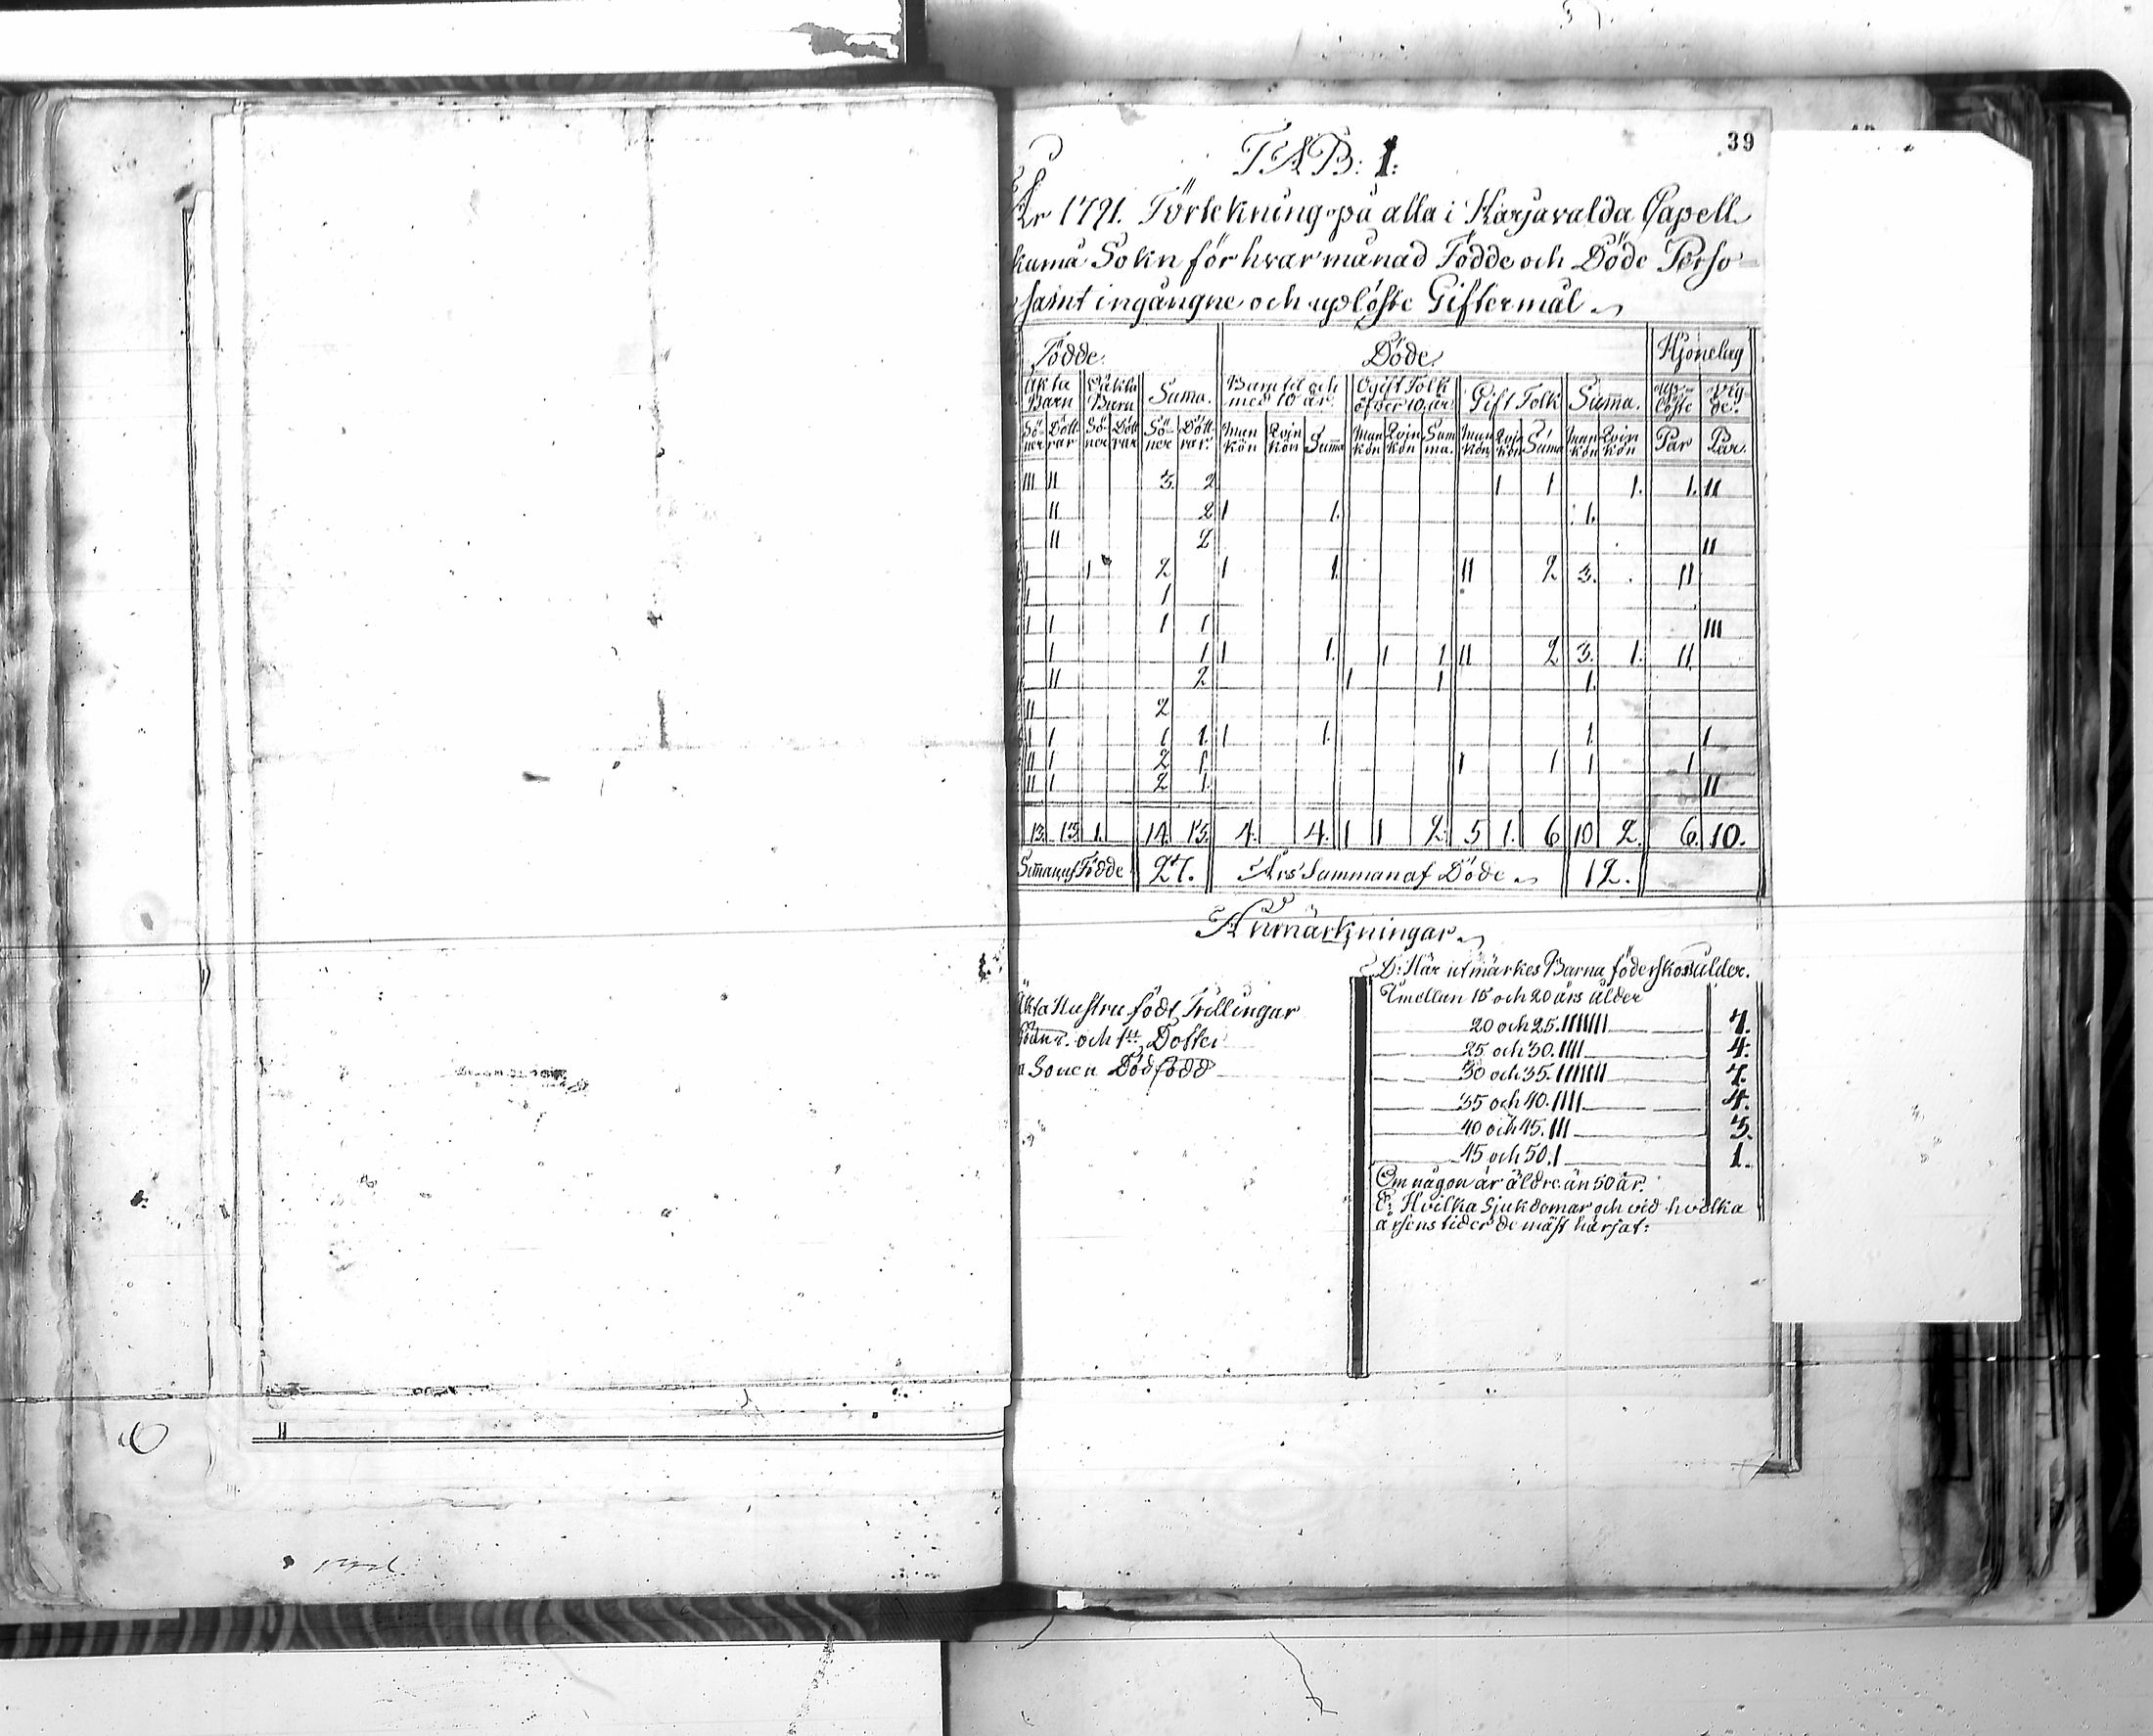 39
TAB: 1:
År 1791. Förtekning på alla i Karjavalda Capell
kumå Sokn för hvar månad Födde och Döde Perso-
samt ingångne och uplöste Giftermål
Födde. Döde. Hjonelag
Äkta Barn Oäkta Barn Suma. Barn til och med 10 år Ogift Folk öfver 10 år Gift Folk Sum̄a. up-löste Vig-de.
Sö-ner Dött rar Sö-ner Dött rar Sö-ner Dött rar. Man kön Qvin kön Sum̄a Man kön Qvin kön Sum ma. Man kön Qvin kön Sum̄a Man kön Qvin kön Par Par.
III II 3. 2 I 1 1. 1. II
II 2 I 1. 1.
II 2 II
I I 2 I 1. II 2 3. II
I 1
I I 1 1 III
I 1 I 1. I 1 II 2 3. 1. II
II 2 I 1 1.
II 2
I I 1 1. I 1. 1. I
II I 2 1 I 1 1 1
II I 2 1. II
13. 13. 1. 14. 13. 4. 4. 1 1 2. 5 1. 6 10 2. 6. 10.
Sum̄an af Födde 27. Års Summan af Döde 12.
Anmärkningar
D: Här utmärkes Barna föderskors ålder.
Äkta Hustru födt Trillingar
och 1 Dotter
Sonen Dödfödd
Emellan 15 och 20 års ålder
20 och 25. IIIIIII 7.
25 och 30. IIII 4.
30 och 35. IIIIIII 7.
35 och 40. IIII 4.
40 och 45. III 3.
45 och 50. I 1.
Om någon är äldre än 50 år.
E: Hvilka Sjukdomar och vid hvilka
årsens tider de mäst härjat: